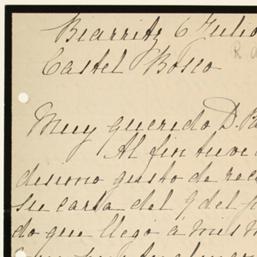 Biarritz 6 Julio
Castel Bosco
Muy querido D. R
Al fin tuve
desimo gusto de rec
su carta del 9 del p
do que llegó á mis m